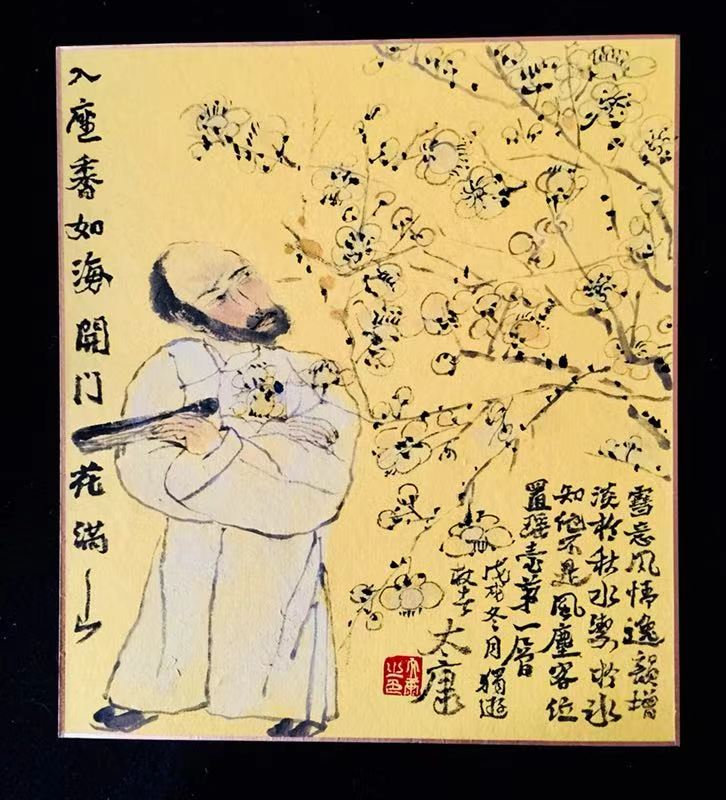 雪意风情逸韻增
淡於秋水於冰
知他不是風塵客位
置瑶臺第一層
戊戌冬月獨遊
太康
入座香如海開门花满山